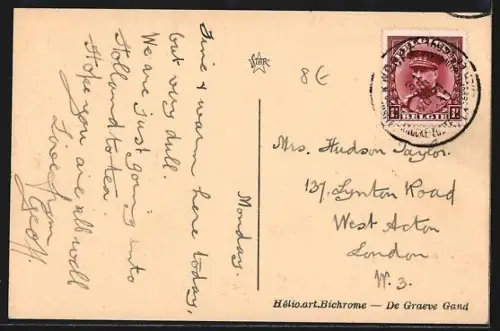 Monday.
Fine & warm here today,
but very dull.
We are just going into
Holland to tea.
Hope you are all well
Love from
Geoff.
STAR
8€
BELGIE
Mrs. Hudson Taylor.
137. Lynton Road
West Acton
London
W. 3.
Hélio.art.Bichrome — De Graeve Gand